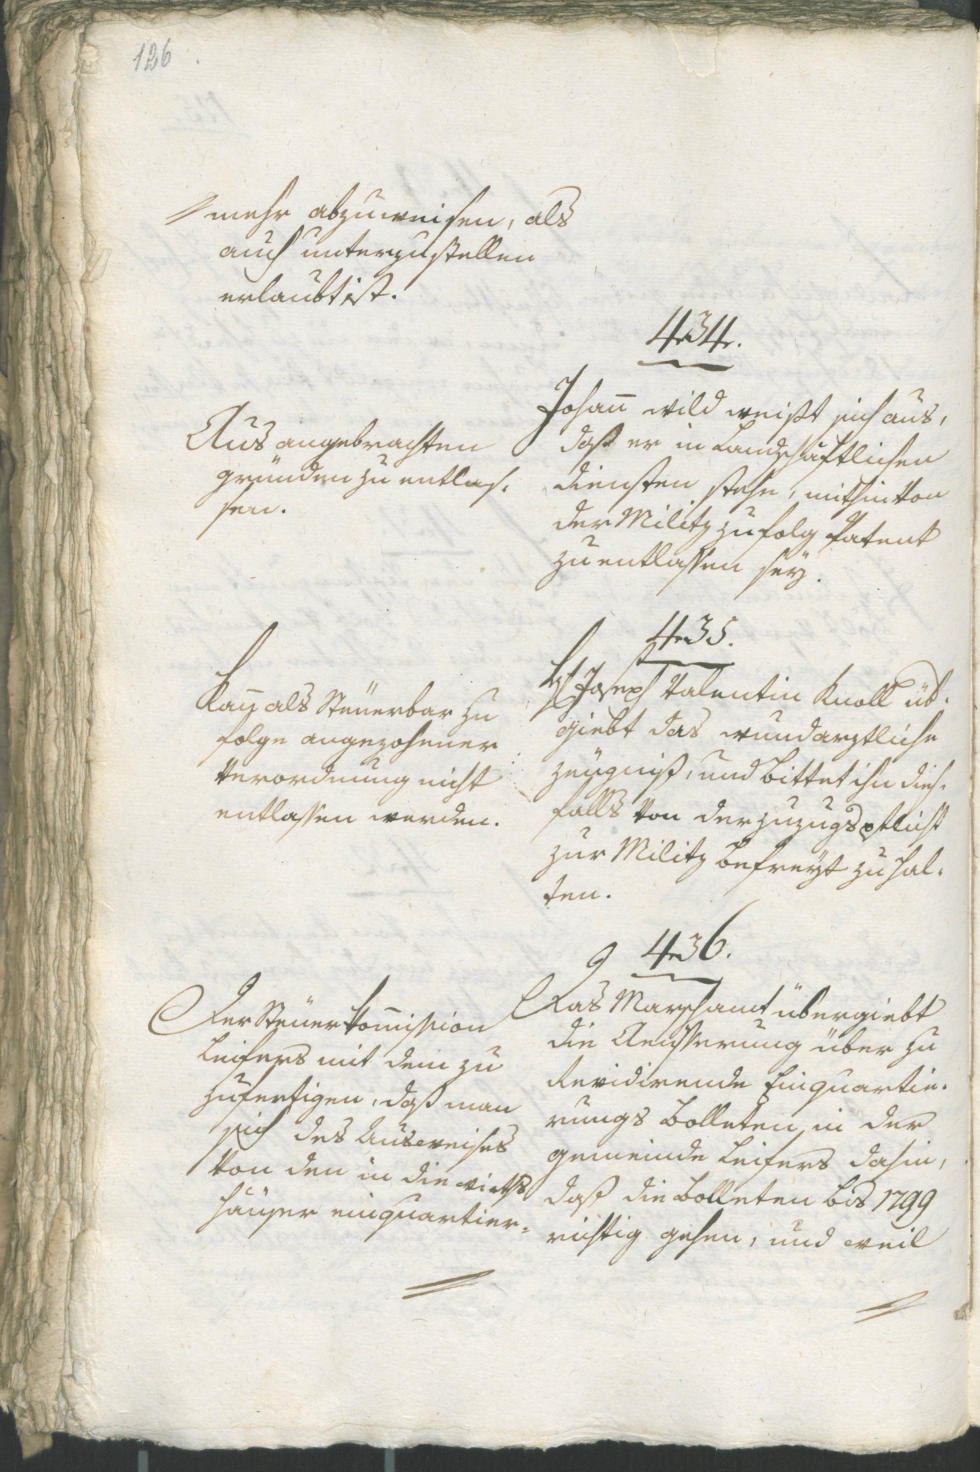 126
mehr abzuweisen, als
auch unterzustellen
erlaubt ist.
434.
Aus angebrachten
gründen zu entlas¬
sen.
Johann wild weißt sich aus,
daß er in Landschäftlichen
diensten stehe, mithin von
der Militz zufolg Patent
zu entlassen seÿ.
435.
Kan̄ als Steüerbar zu
folge angezohener
Verordnung nicht
entlassen werden.
Joseph Valentin Knoll üb¬
giebt das wundarztliche
zeügniß, und bittet ihn dies¬
falls von der zuzugspflicht
zur Militz befreyt zu hal¬
ten.
436.
Der Steüer Kom̄ission
Leifers mit dem zu
zufertigen, daß man
sich des Ausweises
von den in die wirths
häuser einquartier¬
Das Marschamt übergiebt
die Aeusserung über zu
Revidirende Einquartie¬
rungs Bolleten in der
gemeinde Leifers dahin,
daß die Bolleten bis 1799
richtig gehen, und weil